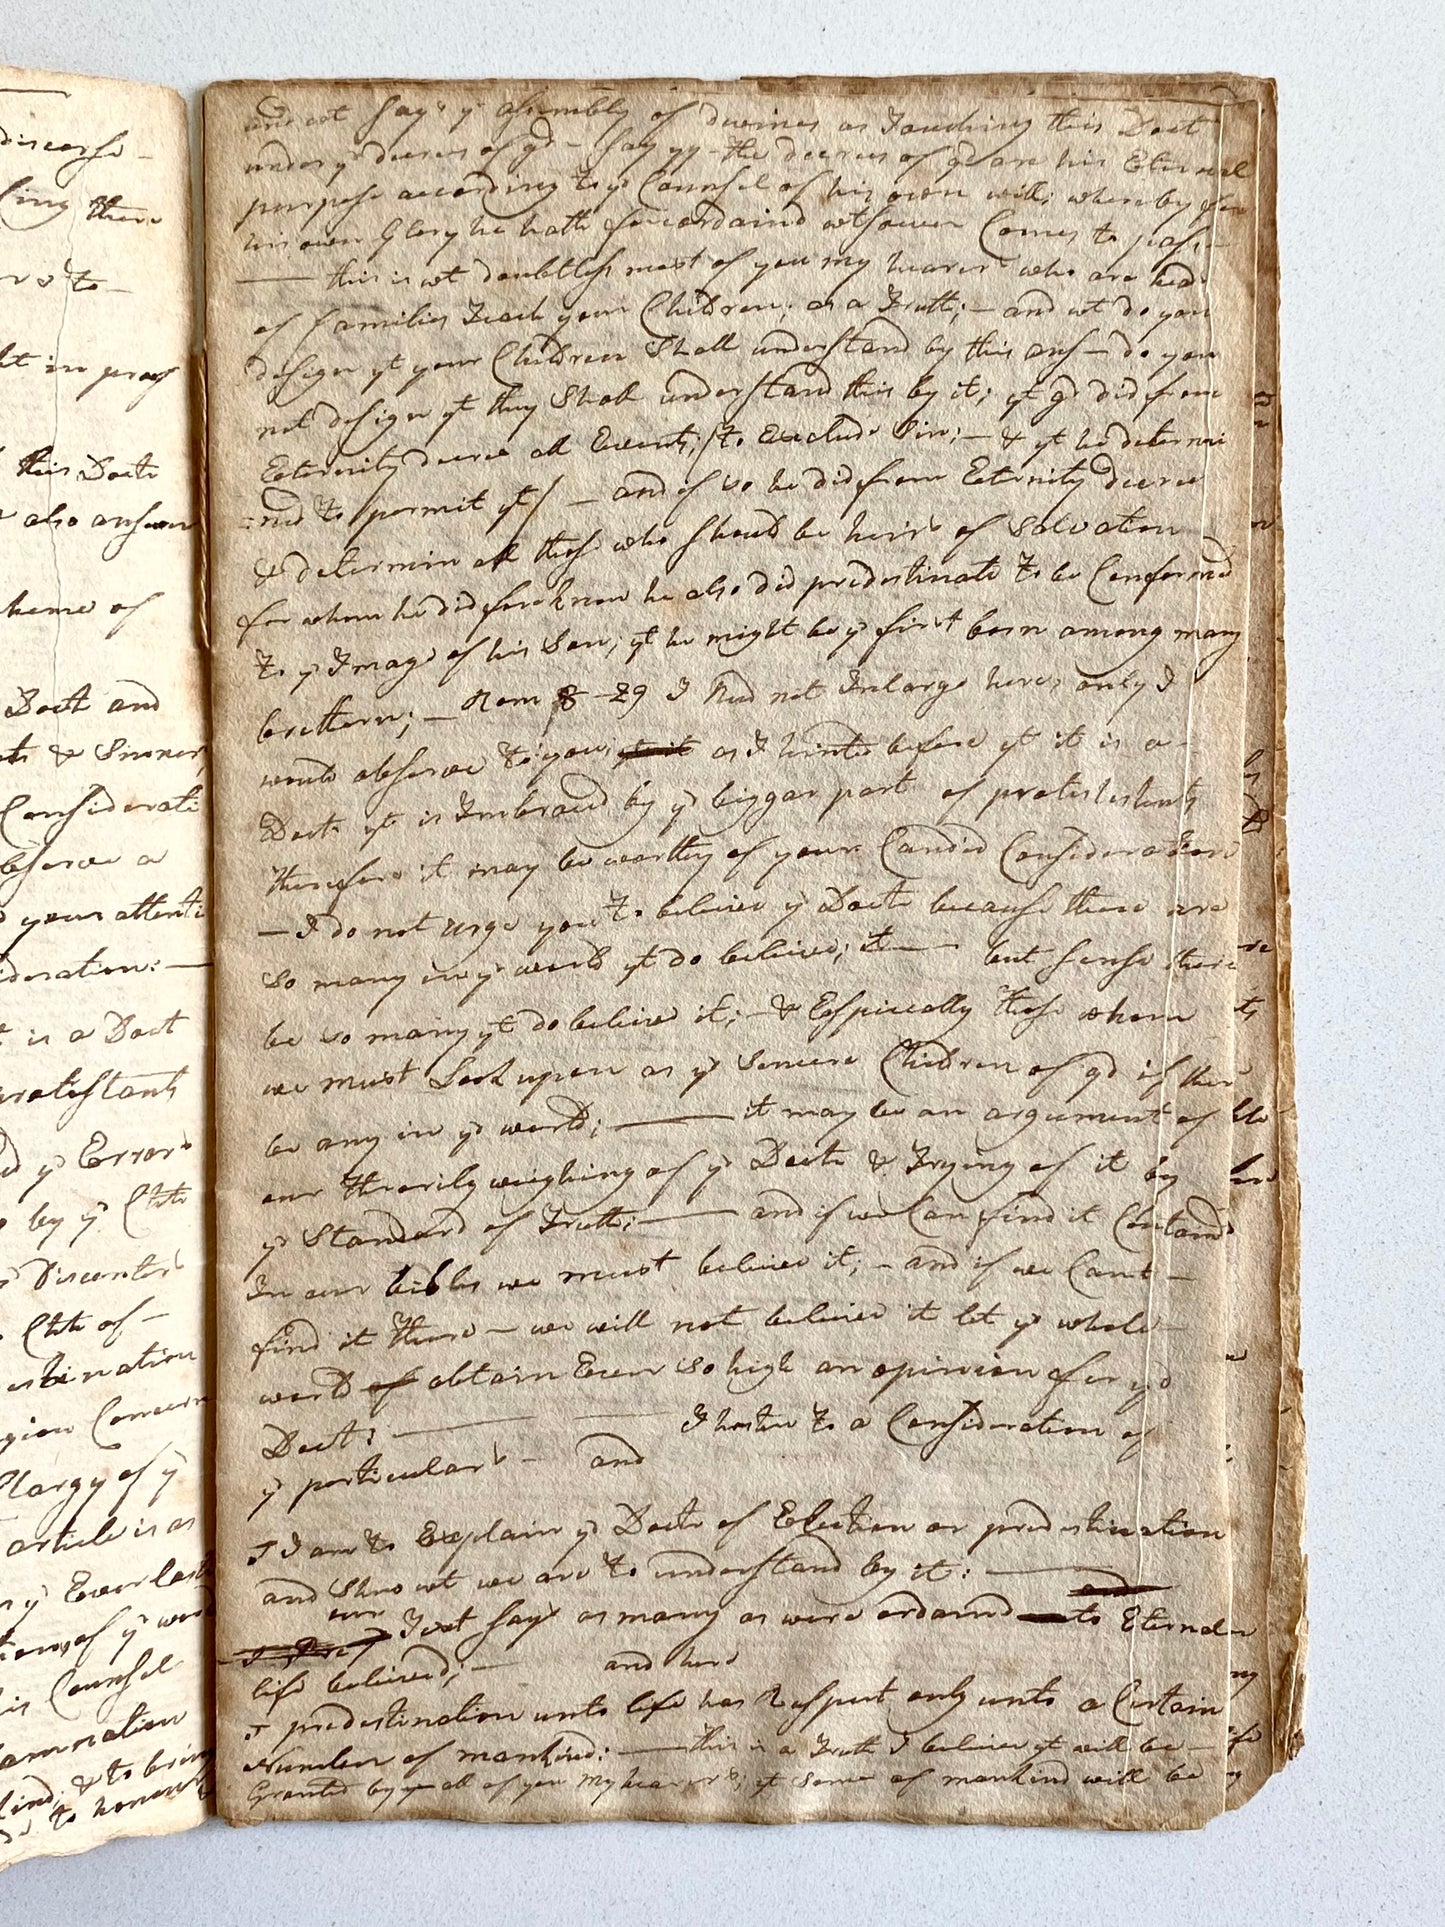 discorse -
this Doct
also answer
heme of
Doct and
& Sinner,
Considerati
observe a
your attenti
ideration: —
is a Doct
protestants
ye Errors
by ye Chh
Discenters
Chh of -
estination
Concern
Clargy of ye
article is as
ye Everlasti
of ye world
is Counsel
damnation
kind; & to bring
to honour
and wt says ye assembly of divines as Touching this Doct
under ye decrees of gd - say yy - the decrees of gd are his Eternal
purpose according to ye Counsel of his own will; whereby for
his own Glory he hath foreordaind wtsoever Comes to pass -
— this is wt doubtless most of you my hearers who are heads
of families Teach your Children; as a Truth; - and wt do you
design yt your Children Shall understand by this ans - do you
not design yt they Shall understand this by it; yt gd did from
Eternity decree all Events; (to Exclude Sin; - & yt he determi
:ned to permit yt) - and if so he did from Eternity decree
& determin all those who should be heirs of Salvation
for whom he did foreknow he also did predestinate to be Conformed
to ye Image of his Son; yt he might be ye first born among many
brethern; - Rom 8 - 29 I Need not Inlarge here; only I
would observe to you; as I hinted before yt it is a -
Doct yt is Imbraced by ye biggar part of protestestants
therefore it may be worthy of your Candid Consideration
- I do not urge you to believe ye Doct because there are
so many in ye world yt do believe; it — but sense there
be so many yt do believe it; - & Espicially those whom
we must Look upon as ye Sincere Children of gd if there
be any in ye world; — it may be an argument of
our thorily weighing of ye Doct & Trying of it by
ye Standard of Truth; — and if we Can find it Containd
In our bibles we must believe it; - and if we Cant -
find it there - we will not believe it let ye whole -
world of obtain Ever so high an opinion for ye
Doct: — — I hasten to a Consideration of
ye particulars - and
I I am to Explain ye Doct of Election or predestination
and Shew wt we are to understand by it: — and
our Text says as many as were ordaind to Eternal
life believed; - and here
I predestination unto life has Respect only unto a Certain
Number of mankind: — this is a Truth I believe yt will be -
Granted by ye all of you my hearers; yt some of mankind will be